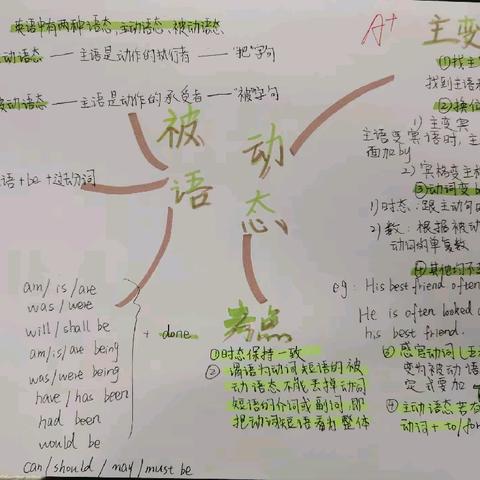 英语中有两种语态,主动语态、被动语态
动语态 —— 主语是动作的执行者 —— "把"字句
被动语态 —— 主语是动作的承受者 —— "被"字句
语 + be + 过去分词
am/is/are
was/were
will/shall be
am/is/are being
was/were being
have/has been
had been
would be
can/should/may/must be
+ done
被
动
语
态
A+
考点
①时态保持一致
② 谓语为动词短语的被
动语态不能去掉动词
短语的介词或副词,即
把动词短语看为整体
主变
①找主
找到主语和
②换位
1) 主变宾
主语变宾语时,主
面加by
2) 宾格变主格
③动词变b
1)时态:跟主动句的
2) 数:根据被动
动词的单复数
④其他均不
eg: His best friend often
He is often looked
his best friend.
③ 感官动词
变为被动语
定式要加
④ 主动语态若有
动词 + to/for